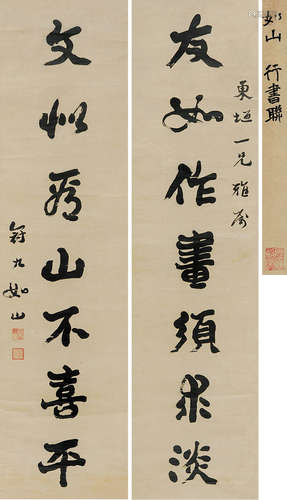 如山 行書聯
友如作畫須求淡
東垣一兄雅屬
文似看山不喜平
冠九如山